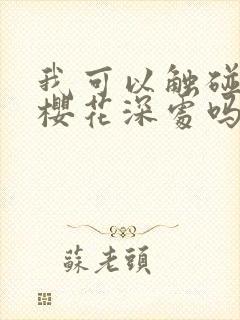 我可以触碰
樱花深处吗
蘇老頭